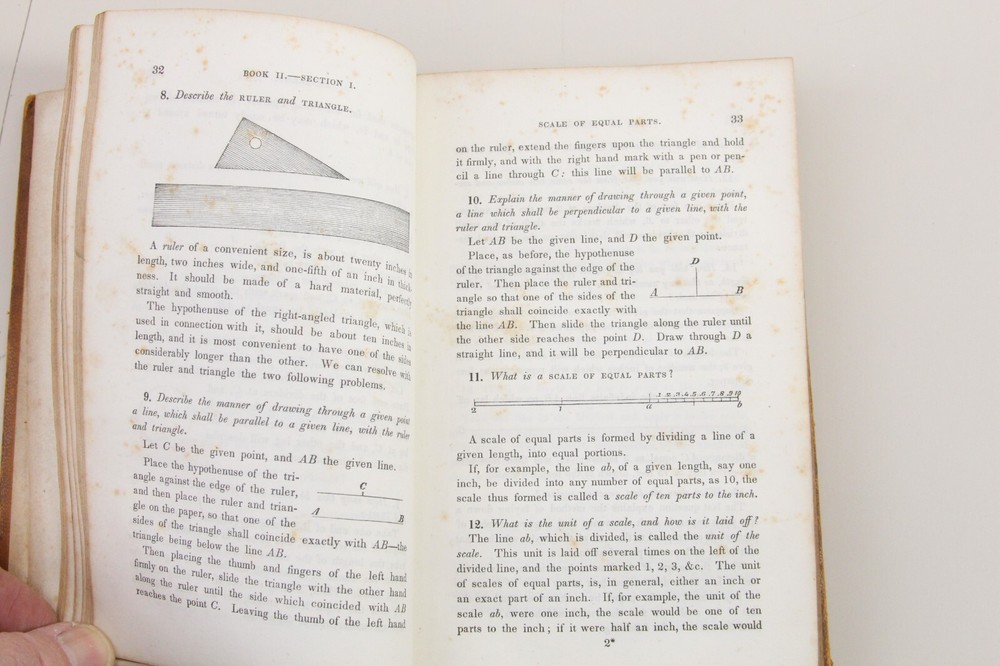 32
BOOK II.—SECTION I.
8. Describe the RULER and TRIANGLE.
A ruler of a convenient size, is about twenty inches in
length, two inches wide, and one-fifth of an inch in thick-
ness. It should be made of a hard material, perfectly
straight and smooth.
The hypothenuse of the right-angled triangle, which is
used in connection with it, should be about ten inches in
length, and it is most convenient to have one of the sides
considerably longer than the other. We can resolve with
the ruler and triangle the two following problems.
9. Describe the manner of drawing through a given point
a line, which shall be parallel to a given line, with the ruler
and triangle.
Let C be the given point, and AB the given line.
Place the hypothenuse of the tri-
angle against the edge of the ruler,
and then place the ruler and trian-
gle on the paper, so that one of the
sides of the triangle shall coincide exactly with AB—the
triangle being below the line AB.
C
A B
Then placing the thumb and fingers of the left hand
firmly on the ruler, slide the triangle with the other hand
along the ruler until the side which coincided with AB
reaches the point C. Leaving the thumb of the left hand
SCALE OF EQUAL PARTS.
33
on the ruler, extend the fingers upon the triangle and hold
it firmly, and with the right hand mark with a pen or pen-
cil a line through C: this line will be parallel to AB.
10. Explain the manner of drawing through a given point,
a line which shall be perpendicular to a given line, with the
ruler and triangle.
Let AB be the given line, and D the given point.
Place, as before, the hypothenuse
of the triangle against the edge of the
ruler. Then place the ruler and tri-
angle so that one of the sides of the
triangle shall coincide exactly with
the line AB. Then slide the triangle along the ruler until
the other side reaches the point D. Draw through D a
straight line, and it will be perpendicular to AB.
D
A B
11. What is a SCALE OF EQUAL PARTS?
.1 .2 .3 .4 .5 .6 .7 .8 .9 10
2 1 a b
A scale of equal parts is formed by dividing a line of a
given length, into equal portions.
If, for example, the line ab, of a given length, say one
inch, be divided into any number of equal parts, as 10, the
scale thus formed is called a scale of ten parts to the inch.
12. What is the unit of a scale, and how is it laid off?
The line ab, which is divided, is called the unit of the
scale. This unit is laid off several times on the left of the
divided line, and the points marked 1, 2, 3, &c. The unit
of scales of equal parts, is, in general, either an inch or
an exact part of an inch. If, for example, the unit of the
scale ab, were one inch, the scale would be one of ten
parts to the inch; if it were half an inch, the scale would
2*